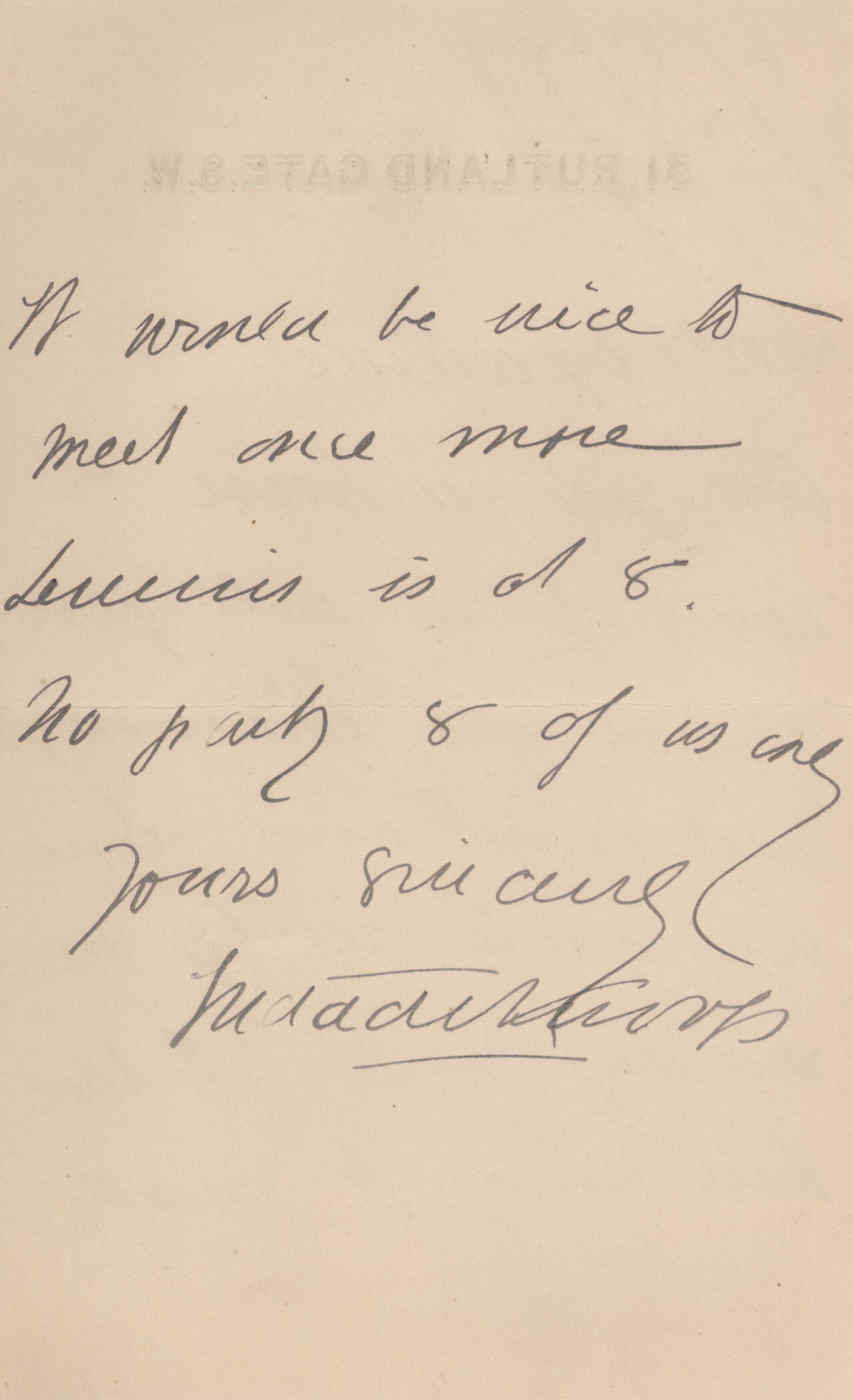 31, RUTLAND GATE. S.W.
It would be nice to
meet once more
is at 8.
No party 8 of us only
Yours sincerely